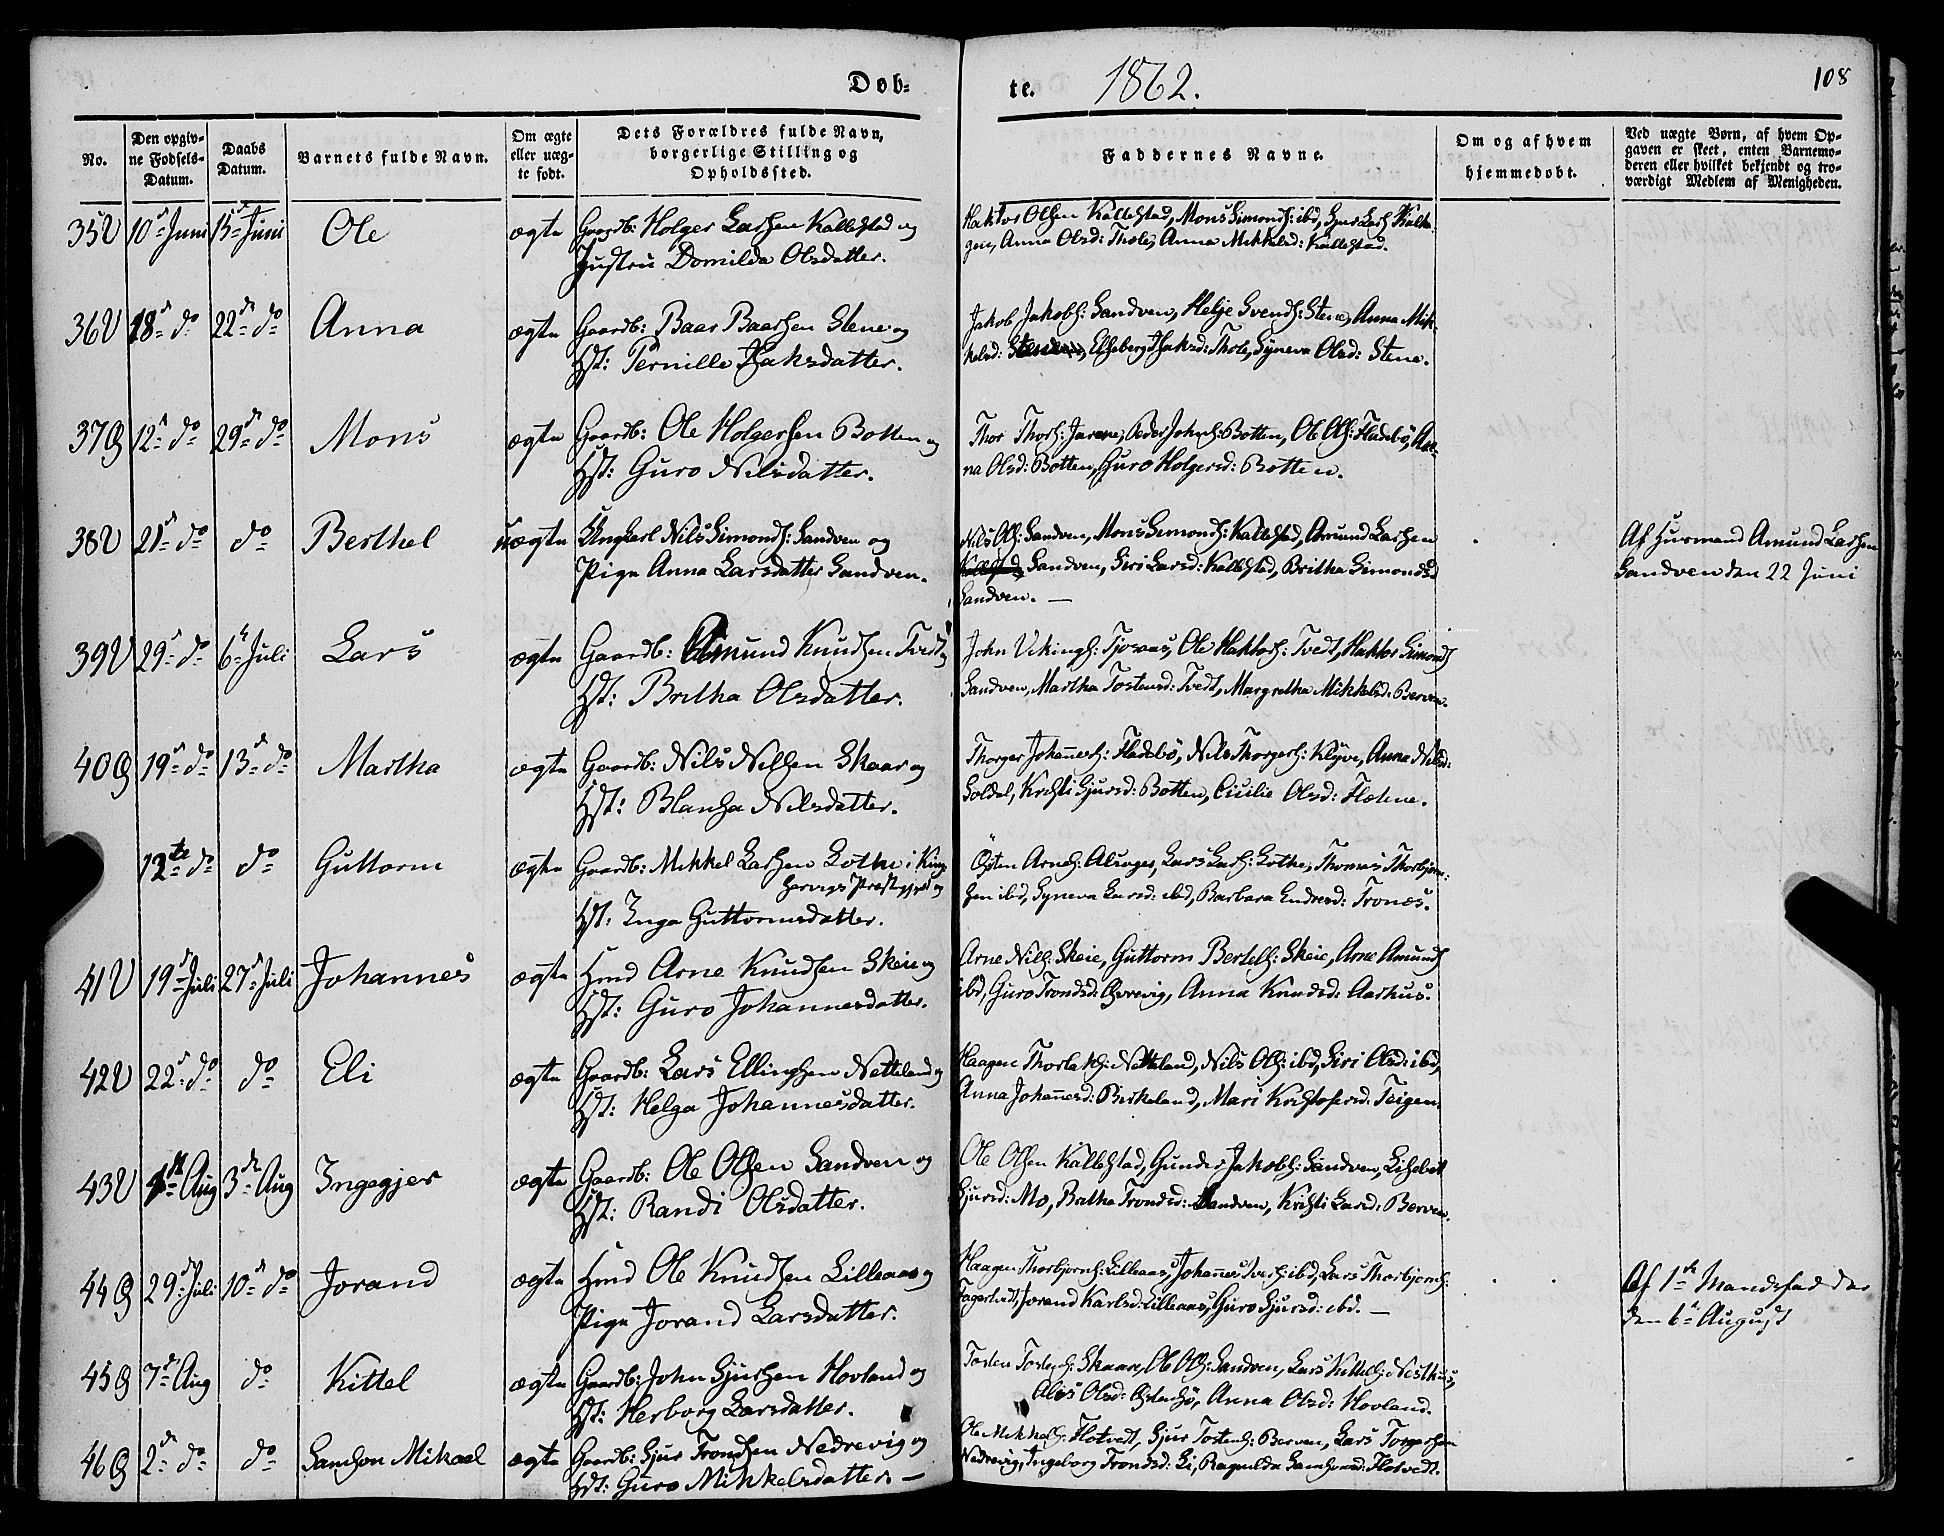 Døb-
te.
1862.
108
No.
Den opgiv-
ne Fødsels-
Datum.
Daabs
Datum.
Barnets fulde Navn.
Om ægte
eller uæg-
te født.
Dets Forældres fulde Navn,
borgerlige Stilling og
Opholdssted.
Faddernes Navne.
Om og af hvem
hjemmedøbt.
Ved uægte Børn, af hvem Op-
gaven er skeet, enten Barnemo-
deren eller hvilket bekjendt og tro-
værdigt Medlem af Menigheden.
35 V 10d Juni 15d Juni Ole ægte Gaardb: Holger Larsen Kallestad og
Hustru Domilda Olsdatter.
Haktor Olsen Kallestad, Mons Simonds: ibd,
Anna Olsd: Thole, Anna Mikkelsd: Kallestad.
36 V 18d do 22d do Anna ægte Gaardb: Baar Baarsen Stene og
Hst: Pernille Isaksdatter.
Jakob Jakobs: Sandven, Helje Svends: Stene, Anna Mik-
kelsd: Elseberg Isaksd: Thole, Syneva Olsd: Stene.
37 G 12d do 29d do Mons ægte Gaardb: Ole Holgersen Botten og
Hst: Guro Nilsdatter.
Thor Thors: Peder Johns: Botten, Ole Ols: Fladebø, An-
na Olsd: Botten, Guro Holgersd: Botten.
38 V 21d do do Berthel uægte Ungkarl Nils Simonds: Sandven og
Pige Anna Larsdatter Sandven.
Nils Ols: Sandven, Mons Simonds: Kallestad, Amund Larsen
Kallestad, Sandven, Siri Larsd: Kallestad, Britha Simondsd
Sandven. —
Af Huusmand Amund Larsen
Sandven den 22 Juni
39 V 29d do 6te Juli Lars ægte Gaardb: Amund Knudsen Tvedt og
Hst: Britha Olsdatter.
John Vikings: Tjoraas, Ole Haktors: Tvedt, Haktor Simonds
Sandven, Martha Tostensd: Tvedt, Margretha Mikkelsd: Berven.
40 G 19d do 13d do Martha ægte Gaardb: Nils Nilsen Skaar og
Hst: Blansa Nilsdatter.
Thorger Johannes: Fladebø, Nils Thorgers: Klyve, Anna Nilsd:
Soldal, Kristi Sjursd: Botten, Cicilie Olsd: Flotene.
12te do do Guttorm ægte Gaardb: Mikkel Larsen Lothe i Kinz-
servigs Præstegjeld og
Hst: Inga Guttormsdatter.
Østen Arnes: Alsager, Lars Lars: Lothe, Thomas Thorbjørn-
sen ibd, Syneva Larsd: ibd, Barbara Endresd: Tronæs.
41 V 19d Juli 27d Juli Johannes ægte Hmd Arne Knudsen Skeie og
Hst: Guro Johannesdatter.
Arne Nils: Skeie, Guttorm Bertels: Skeie, Arne Amunds
ibd, Guro Trondsd: Øvrevig, Anna Knudsd: Aarhus.
42 V 22d do do Eli ægte Gaardb: Lars Ellingsen Netteland og
Hst: Helga Johannesdatter.
Haagen Thorlaks: Netteland, Nils Ols: ibd, Siri Olsd: ibd,
Anna Johannesd: Birkeland, Mari Kristofersd: Teigen.
43 V 1ste Aug 3de Aug Ingegjer ægte Gaardb: Ole Olsen Sandven og
Hst: Randi Olsdatter.
Ole Olsen Kallestad, Gunder Jakobs: Sandven, Lisebet
Sjursd: Mo, Britha Trondsd: Sandven, Kristi Larsd: Berven.
44 G 29d Juli 10d do Jorand ægte Hmd Ole Knudsen Lilleaas og
Pige Jorand Larsdatter.
Haagen Thorbjørns: Lilleaas, Johannes Ivers: ibd, Lars Thorbjørns:
Fagertvedt, Jorand Karlsd: Lilleaas, Guro Sjursd: ibd. —
Af 1ste Mandsfadder
den 6te August
45 G 7de Aug do Kittel ægte Gaardb: John Sjursen Hovland og
Hst: Herborg Larsdatter.
Tosten Tostens: Skaare, Ole Ols: Sandven, Lars Kittels: Nesthus,
Olsd: Anna Olsd: Hovland.
46 G 2d do do Samson Mikael ægte Gaardb: Sjur Trondsen Nedrevig og
Hst: Guro Mikkelsdatter. —
Ole Mikkels: Flotvedt, Sjur Tostens: Berven, Lars Torgersen
Nedrevig, Ingeborg Trondsd: Li, Ragnilda Samsonsd: Flotvedt.